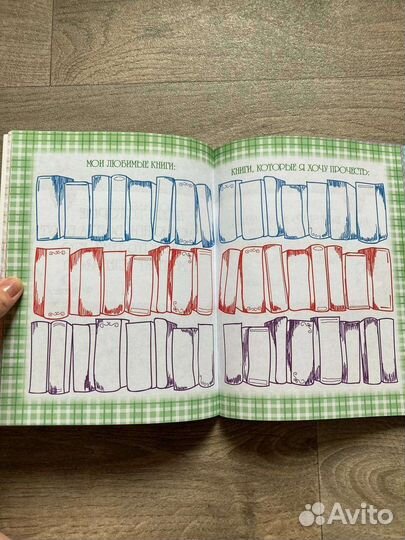 МОИ ЛЮБИМЫЕ КНИГИ:
КНИГИ, КОТОРЫЕ Я ХОЧУ ПРОЧЕСТЬ:
Avito